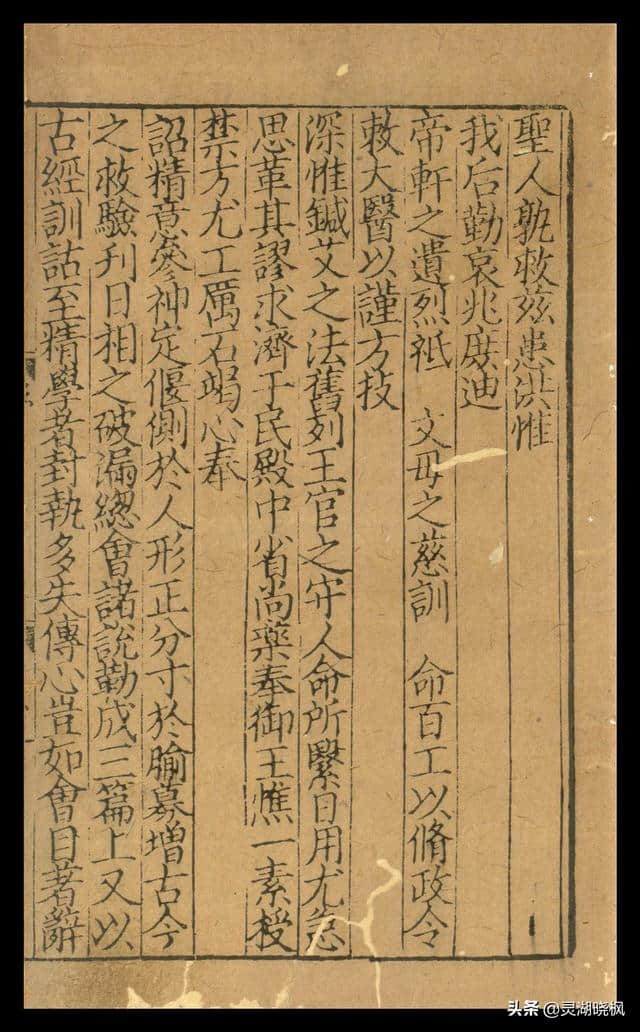 聖人孰救兹患洪惟
我后勤哀兆庶迪
帝軒之遺烈祗　文母之慈訓　命百工以脩政令
敕大醫以謹方技
深惟鍼艾之法舊列王官之守人命所繫日用尤急
思革其謬求濟于民殿中省尚藥奉御王惟一素授
禁方尤工厲石竭心奉
詔精意參神定偃側於人形正分寸於腧募增古今
之救驗刋日相之破漏緫會諸說勒成三篇上又以
古經訓詁至精學者封執多失傳心豈如會目著辭
头条 @灵湖晓枫